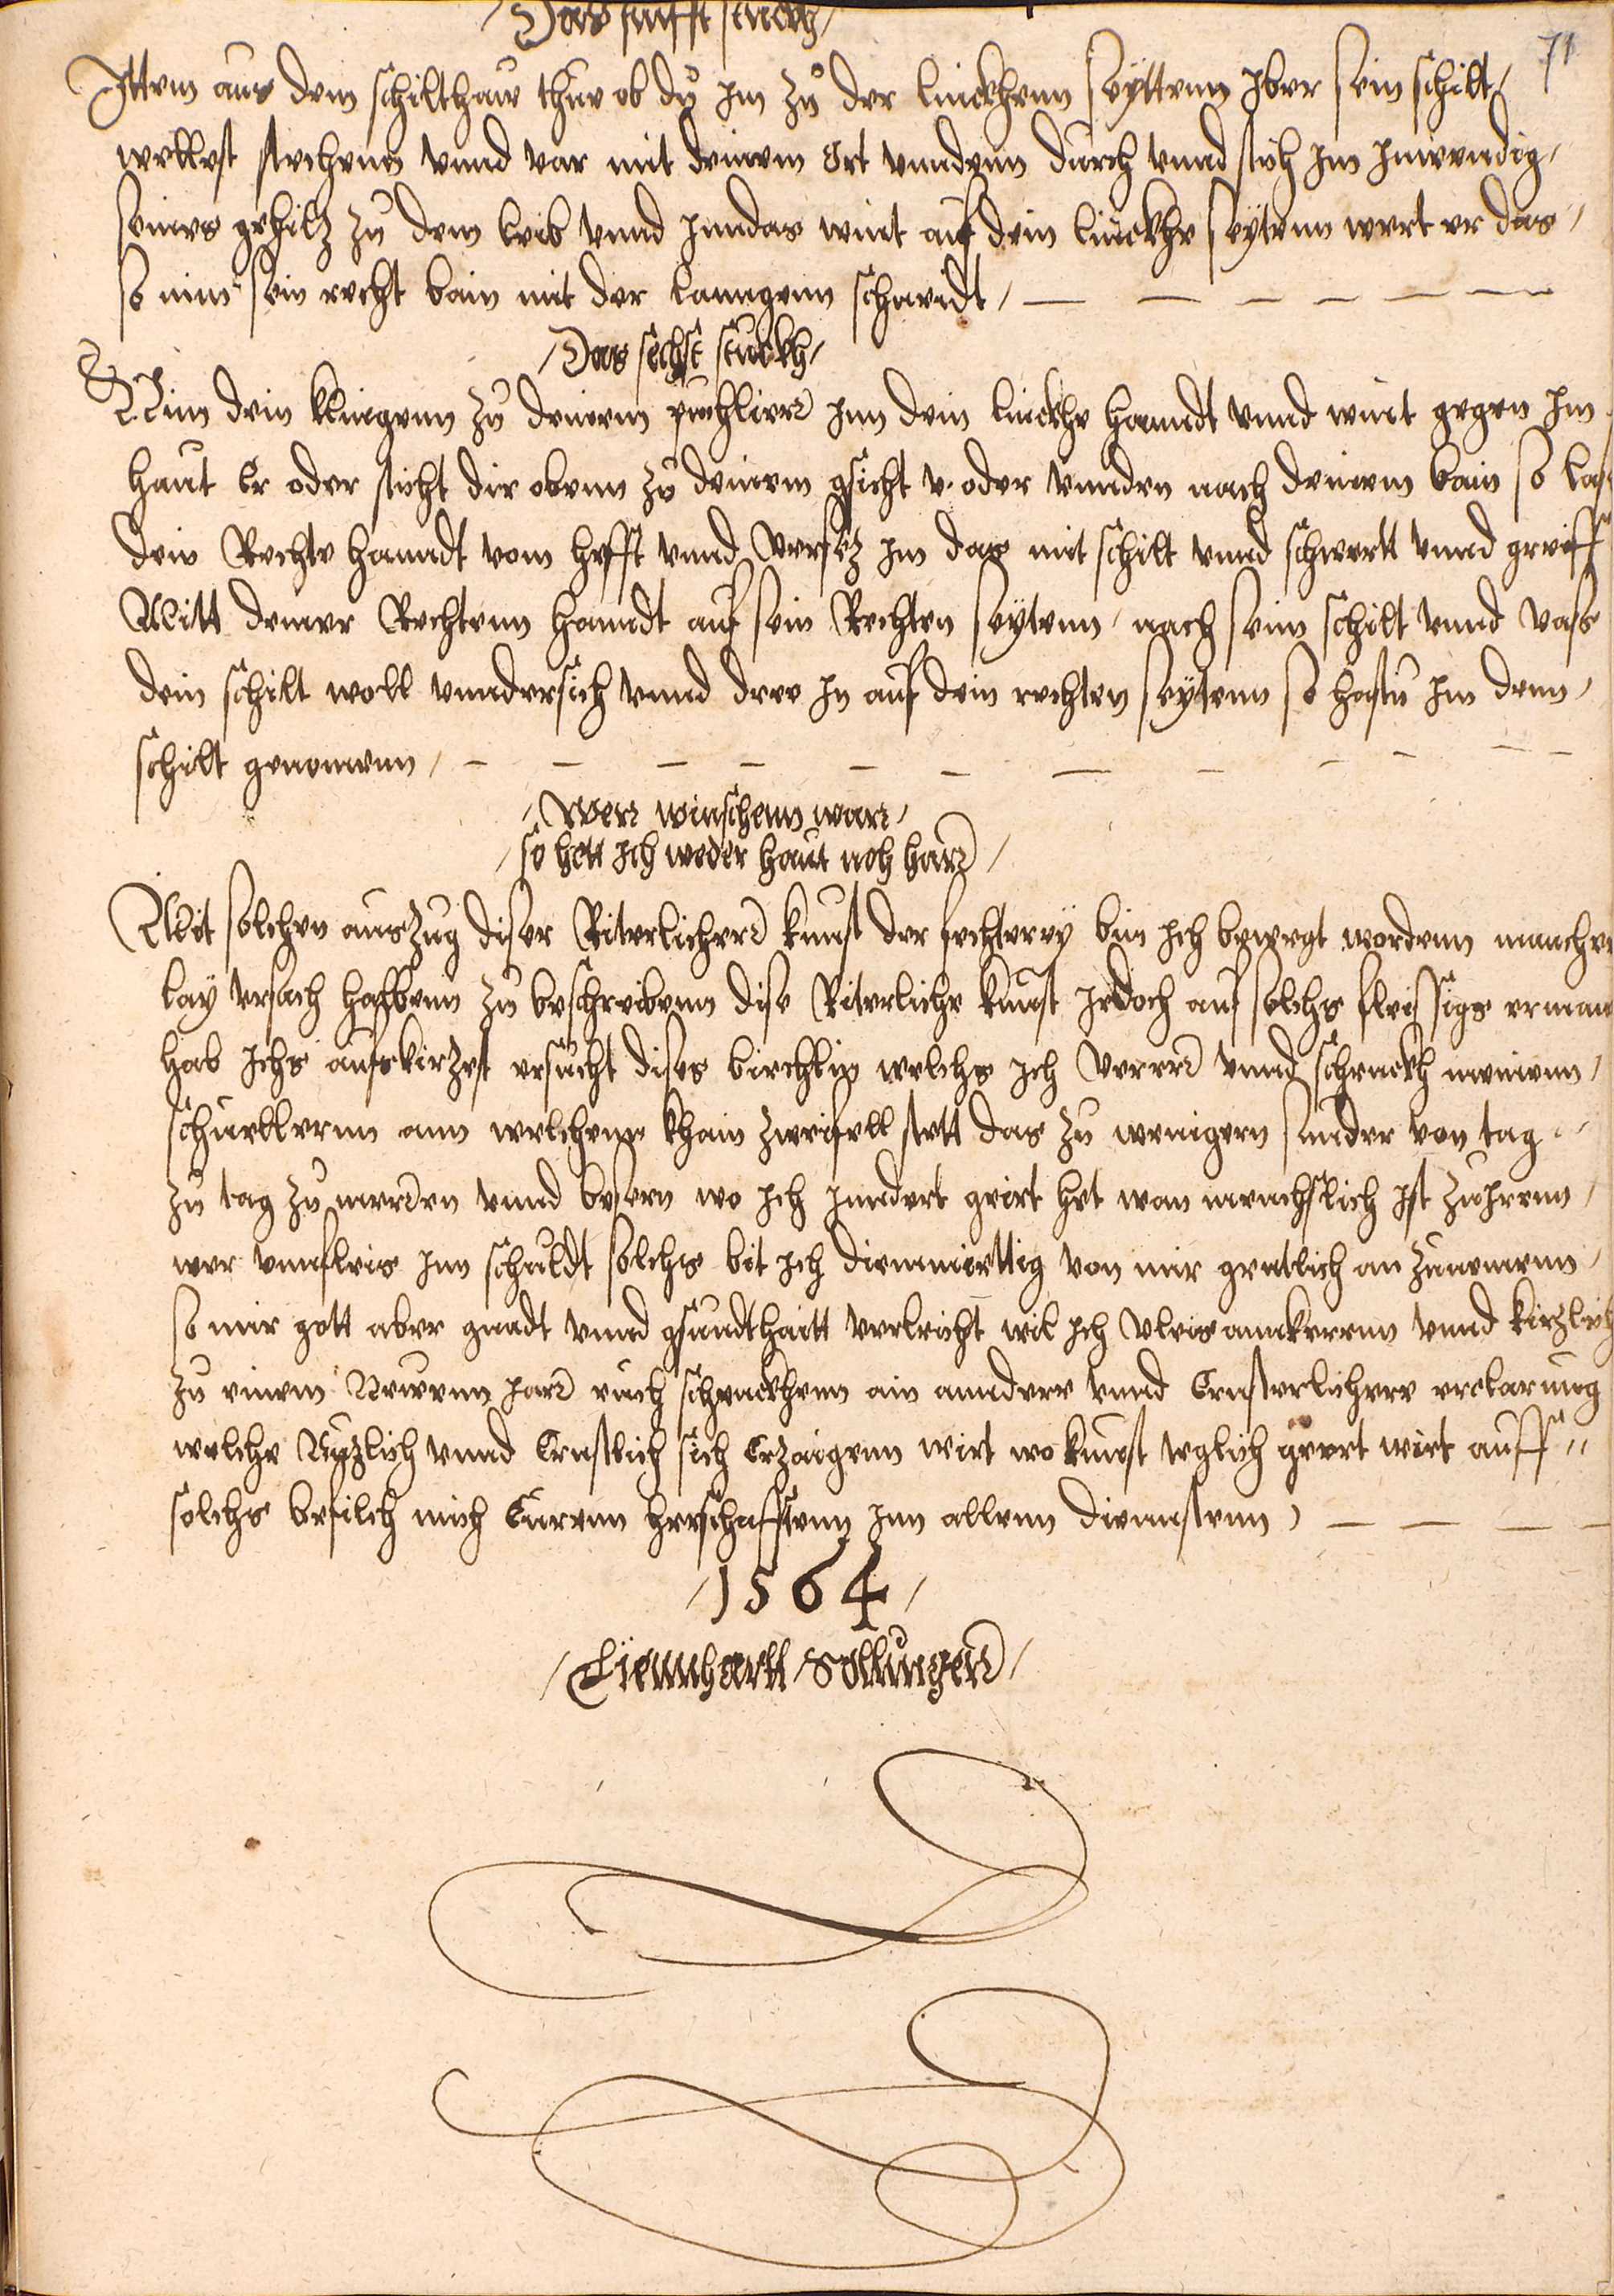 / Das funfft stuckh /
71
Ittem aus dem schilthaw thue ob du Im zu der linckhenn seyttenn Iber sein schilt /
wellest stechenn vnnd var mit deinem Ort vnndenn durch vnnd stich Im Inwendig /
seines gehilz zu dem leib vnnd Inndas wint auf dein linckhe seytenn wert er das /
so nim sein recht bain mit der lanngenn schneidt /
/ Das sechst stuckh /
Nim dein klingenn zu deinem puchlierr Inn dein linckhe hanndt vnnd wint gegen Im
haut Er oder sticht dir obenn zu deinem gsicht oder vnnden nach deinem bain so las
dein Rechte hanndt vom hefft vnnd Versez Im das mit schilt vnnd schwertt vnnd greiff
Mitt deiner Rechtenn hanndt auf sein Rechten seytenn nach seim schilt vnnd vass
dein schilt woll vnndersich vnnd dree In auf dein rechten seytenn so hastu Im denn /
schilt genomenn /
/ Wer winschenn war /
/ so hett Ich weder haut noh har /
Mit solchen auszug diser Riterlicherr kunst der fechterey bin Ich bewegt wordenn mancher
lay vrsach halbenn zu beschreibenn dise Riterliche kunst Jedoch auf solchs fleissigs erman
hab Ichs aufs kirzest ersucht dises biechlin welchs Ich Vererr vnnd schenckh meinenn /
schuellernn ann welchenn khain zweifell stett das zu wenigern sunder von tag
zu tag zu merren vnnd besern wo Ich Inndert geirt het wan menschlich Ist zu Irenn /
wer vnnfleis Inn schuldt solchs bit Ich diemiettig von mir gentlich an zunemenn /
so mir gott aber gnadt vnnd gsundthaitt verleicht wil Ich vleis annkerenn vnnd kirzlich
zu einem Newenn Jarr euch schenckhenn ain anndere vnnd Ernsterlichere erclarung
welche Nuzlich vnnd Ernstlich sich Erzaigenn wirt wo kunst teglich geert wirt auff
solchs befilch mich Eurenn herschafftenn Inn allenn dienstenn /
/ 1564 /
/ Liennhartt Sollingerr /